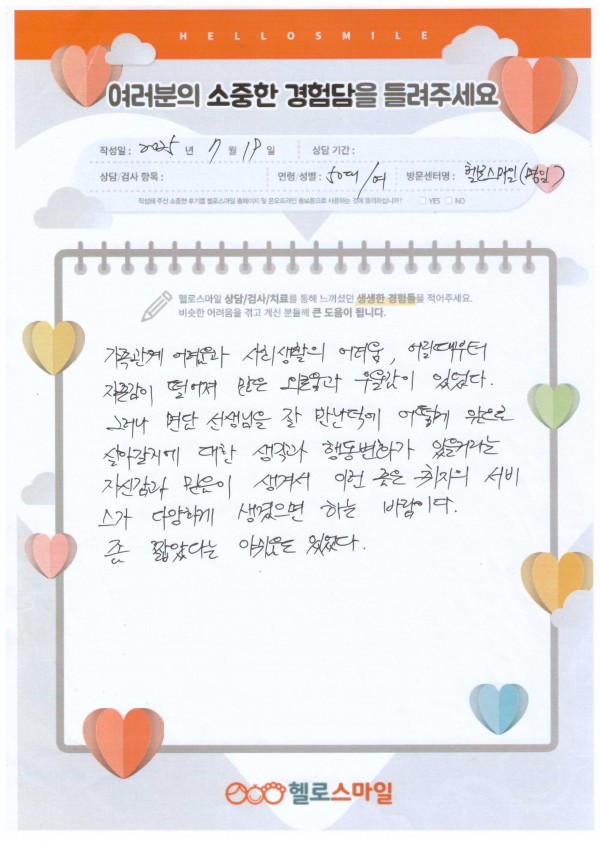 HELLOSMILE
여러분의 소중한 경험담을 들려주세요
작성일 : 2025 년 7 월 19 일 상담 기간 :
상담/검사 항목 : 연령/성별 : 50대/여 방문센터명 : 헬로스마일(명일)
작성해 주신 소중한 후기를 헬로스마일 홈페이지 및 온오프라인 홍보물으로 사용하는 것에 동의하십니까? YES NO
헬로스마일 상담/검사/치료를 통해 느끼셨던 생생한 경험들을 적어주세요.
비슷한 어려움을 겪고 계신 분들께 큰 도움이 됩니다.
가족관계 어려움과 사회생활의 어려움, 어릴때부터
자존감이 떨어져 많은 외로움과 우울감이 있었다.
그러나 면담 선생님을 잘 만난덕에 어떻게 앞으로
살아갈지에 대한 생각과 행동변화가 있을거라는
자신감과 믿음이 생겨서 이런 좋은 취지의 서비
스가 다양하게 생겼으면 하는 바람이다.
좀 짧았다는 아쉬움도 있었다.
헬로스마일